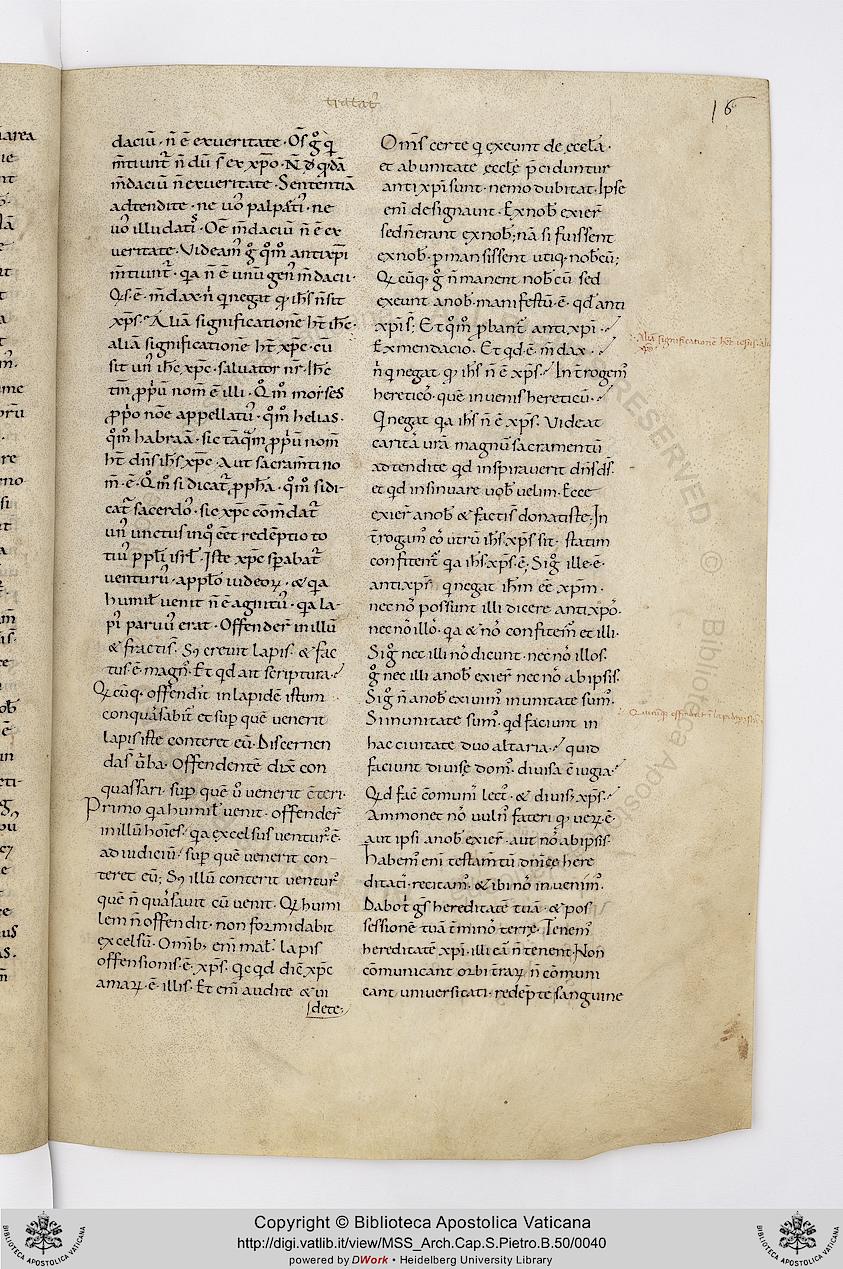 tratat̄
16
daciū· n̄ ē ex veritate· Om̄s g̊ q̄
m̄tiunt᷑ n̄ dū s̄ ex xp̄o· N̄
m̄daciū n̄ ex veritate· Sententiā
adtendite· ne uo᷒ palpat᷒· ne
uo᷒ illudat᷒· Om̄e m̄daciū n̄ ē ex
veritate· Videam᷒ g̊ q̊m̄ antixp̄i
m̄tiunt᷑· q̄a n̄ ē unū gen᷒ m̄dacii·
Q̄s ē· m̄dax· n̄ qui negat q̄ ih̄s n̄ sit
xp̄s· Aliā significationē ht̄ ih̄c·
aliā significationē ht̄ xp̄c· cū
sit un᷒ ih̄c xp̄c· salvator nr̄· Ih̄c
tm̄ ꝓpriū nom̄ ē illi· Q̊m̄ moẏses
ꝓpo nōe appellatu᷒· q̊m̄ helias·
q̊m̄ habraā· sic tāq̄m ꝓpriū nom̄
ht̄ dn̄s ih̄s xp̄c· Aut sacram̄ti no
m̄· ē· Q̊m̄ si dicat᷑ ꝓph̄a· q̊m̄ si di-
cat᷑ sacerdo᷒· sic xp̄c cōm̄dat᷑
un᷒ unctus in q̊ eēt redēptio to
tiu᷒ pp̄li isrl̄· Iste xp̄c sꝑabat᷑
ventur᷒· a pplō iudeoꝝ· & q̄a
humil᷒ venit n̄ ē agnit᷒· q̄a la-
pi᷒ parvu᷒ erat· Offender᷒ in illū
& fracti s̄· S; crevit lapis· & fac
tus· ē· magn᷒· Et qd ait scriptura·
Q̄cūq· offendit in lapidē istum
conquassabit᷑ et suꝑ quē venerit
lapis iste conteret eū· Discernen
da s̄ ūba· Offendentē dix̄ con
quassari· suꝑ quē ū venerit cōteri·
Primo q̄a humil᷒ venit· offender᷒
in illū hoīes· q̄a excelsus ventur᷒· ē·
ad iudiciū· suꝑ quē venerit con-
teret eū; S; illū conterit ventur᷒
quē n̄ quassavit cū venit· Qui humi
lem n̄ offendit· non formidabit
excelsū· Omīb; enī mal᷒ lapis
offensionis· ē· xp̄s· qcqd dic̄ xp̄c
amaꝝ· ē· illis· Et enī audite & vi
dete;
Om̄s certe q̄ exeunt de eccl̄a·
et ab unitate eccl̄e p̄ciduntur
antixp̄i sunt· nemo dubitat· Ipse
enī designavit· Ex nob᷒ exier᷒
sed n̄ erant ex nob᷒; nā si fuissent
ex nob᷒· ꝑmansissent utiq· nob᷒cū;
Q̄cūq· g̊ n̄ manent nob᷒cū sed
exeunt a nob᷒· manifestū· ē· qd anti
xp̄i s̄; Et q̊m̄ ꝓbant᷑ antixp̄i·
Ex mendacio· Et qs· ē· m̄dax·
n̄ q̄ negat· q̄ ih̄s n̄ ē xp̄s· In t̄rogem᷒
heretico᷒· quē invenis hereticū·
Q̄ negat q̄a ih̄s n̄ ē xp̄s· Videat
caritā urā magnū sacramentū
adtendite qd inspiraverit dn̄s ds̄·
et qd insinuare uob᷒ velim· Ecce
exier᷒ a nob᷒ & facti s̄ donatiste; In
t̄rogam᷒ eo᷒ utrū ih̄s xp̄s sit· statim
confitent᷑ q̄a ih̄s xp̄s· ē; Si g̊ ille· ē·
antixp̄s· q̄ negat ih̄m eē xp̄m·
nec no᷒ possunt illi dicere antixp̄o᷒·
nec no᷒ illo᷒· q̄a & no᷒ confitem᷒ et illi·
Si g̊ nec illi no᷒ dicunt· nec no᷒ illos·
g̊ nec illi a nob᷒ exier᷒ nec no᷒ ab ipsis·
Si g̊ n̄ a nob᷒ exivim᷒ in unitate sum᷒·
Si in unitate sum᷒· qd faciunt in
hac civitate duo altaria· quid
faciunt divise dom᷒· divisa cōiugia·
Qd fac̄ cōmuni᷒ lect᷒· & divis᷒ xp̄s·
Ammonet no᷒ vuln᷒ fateri q̄ veꝝ· ē·
aut ipsi a nob᷒ exier᷒· aut no᷒ ab ipsis·
habem᷒ enī testam̄tū dnīce here
ditati᷒· recitam᷒· & ibi no᷒ invenim᷒·
Dabo t̄ gēs hereditatē tuā· & pos
sessionē tuā t̄mino᷒ terre· Tenem᷒
hereditatē xp̄i· illi eā n̄ tenent· Non
cōmunicant orbi t̄raꝝ· n̄ cōmuni
cant universitati· redēpte sanguine
Aliā significationē hēt
xp̄s·
offendit ī lapidē istū
Copyright © Biblioteca Apostolica Vaticana
http://digi.vatlib.it/view/MSS_Arch.Cap.S.Pietro.B.50/0040
powered by DWork • Heidelberg University Library
BIBLIOTECA APOSTOLICA VATICANA
BIBLIOTECA APOSTOLICA VATICANA